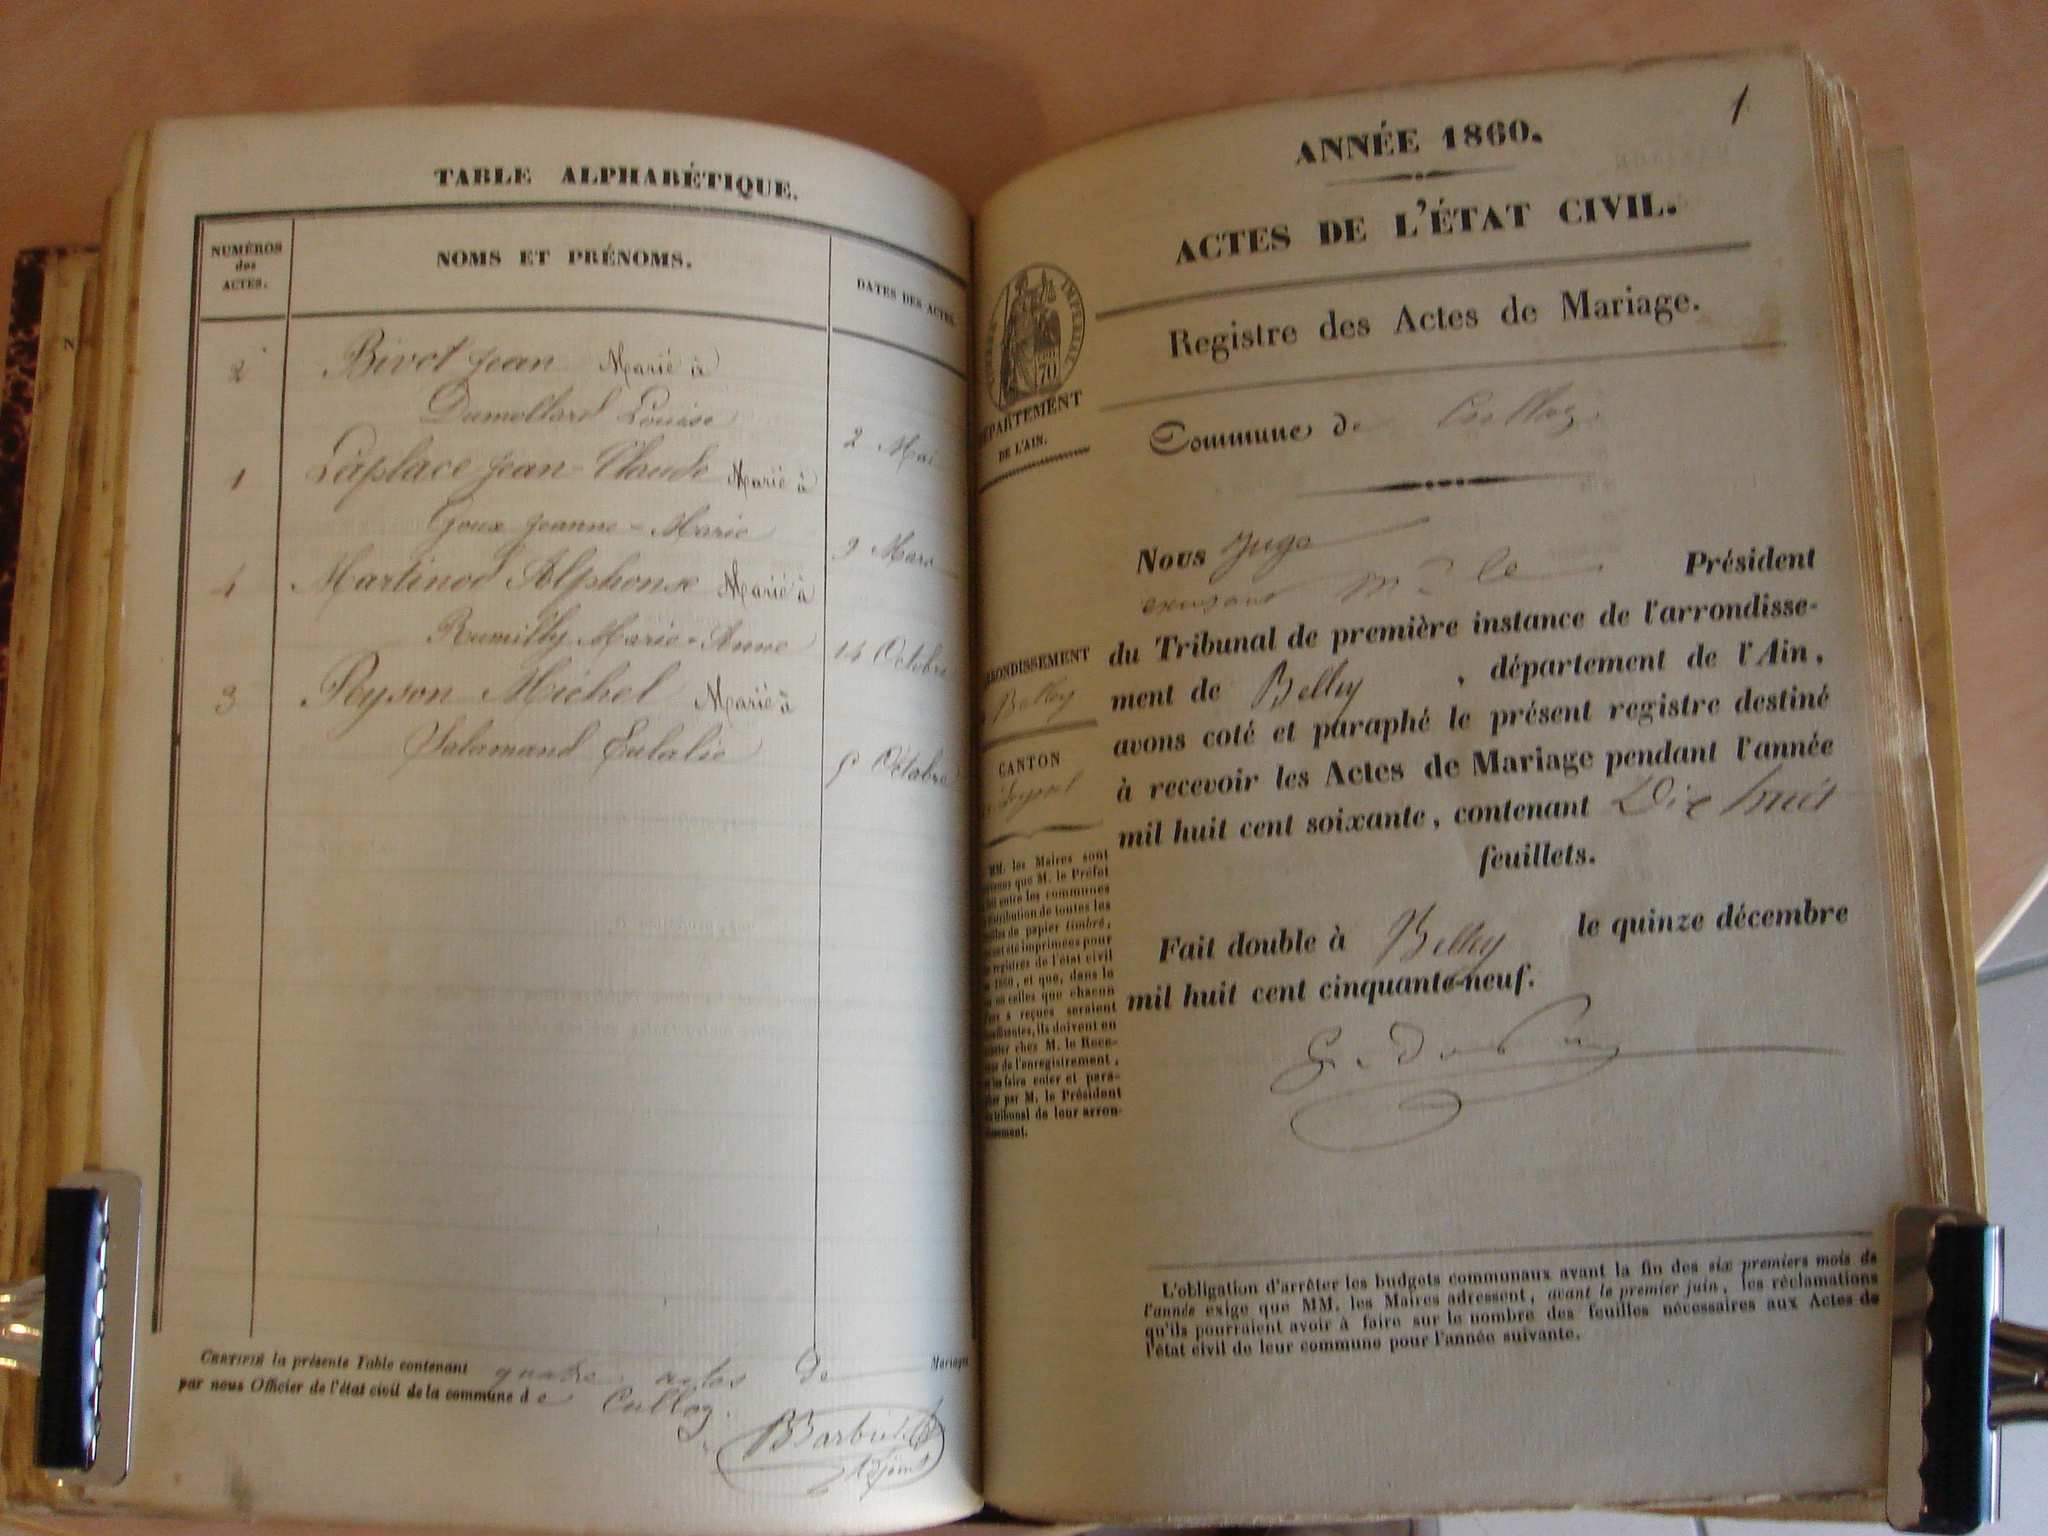 TABLE ALPHABÉTIQUE.
NUMÉROS
des
ACTES.
NOMS ET PRÉNOMS.
DATES DES ACTES
2 Bivot Jean Marié à
Dumollard Louise 2 Mai
1 Laplace Jean-Claude Marié à
Goux Jeanne-Marie 9 Mars
4 Martinod Alphonse Marié à
Rumilly Marie-Anne 14 Octobre
3 Peyson Michel Marié à
Salamand Eulalie 5 Octobre
CERTIFIÉ la présente Table contenant quatre actes de Mariages
par nous Officier de l'état civil de la commune de Culloz.
Adjoint
1
ANNÉE 1860.
ACTES DE L'ÉTAT CIVIL.
Registre des Actes de Mariage.
IMPÉRIAL
70
DÉPARTEMENT
DE L'AIN.
Commune de Culloz.
Nous Juge
Mr le Président
du Tribunal de première instance de l'arrondisse-
ment de Belley, département de l'Ain,
avons coté et paraphé le présent registre destiné
à recevoir les Actes de Mariage pendant l'année
mil huit cent soixante, contenant Dix huit
feuillets.
Fait double à Belley le quinze décembre
mil huit cent cinquante-neuf.
ARRONDISSEMENT
Belley
CANTON
Seyssel
MM. les Maires sont
que M. le Préfet
entre les communes
distribution de toutes les
de papier timbré,
ont été imprimées pour
registres de l'état civil
1860, et que, dans le
où celles que chacun
a reçues seraient
insuffisantes, ils doivent en
chez M. le Rece-
de l'enregistrement,
les faire coter et para-
pher par M. le Président
tribunal de leur arron-
dissement.
L'obligation d'arrêter les budgets communaux avant la fin des six premiers mois de
l'année exige que MM. les Maires adressent, avant le premier juin, les réclamations
qu'ils pourraient avoir à faire sur le nombre des feuilles nécessaires aux Actes de
l'état civil de leur commune pour l'année suivante.